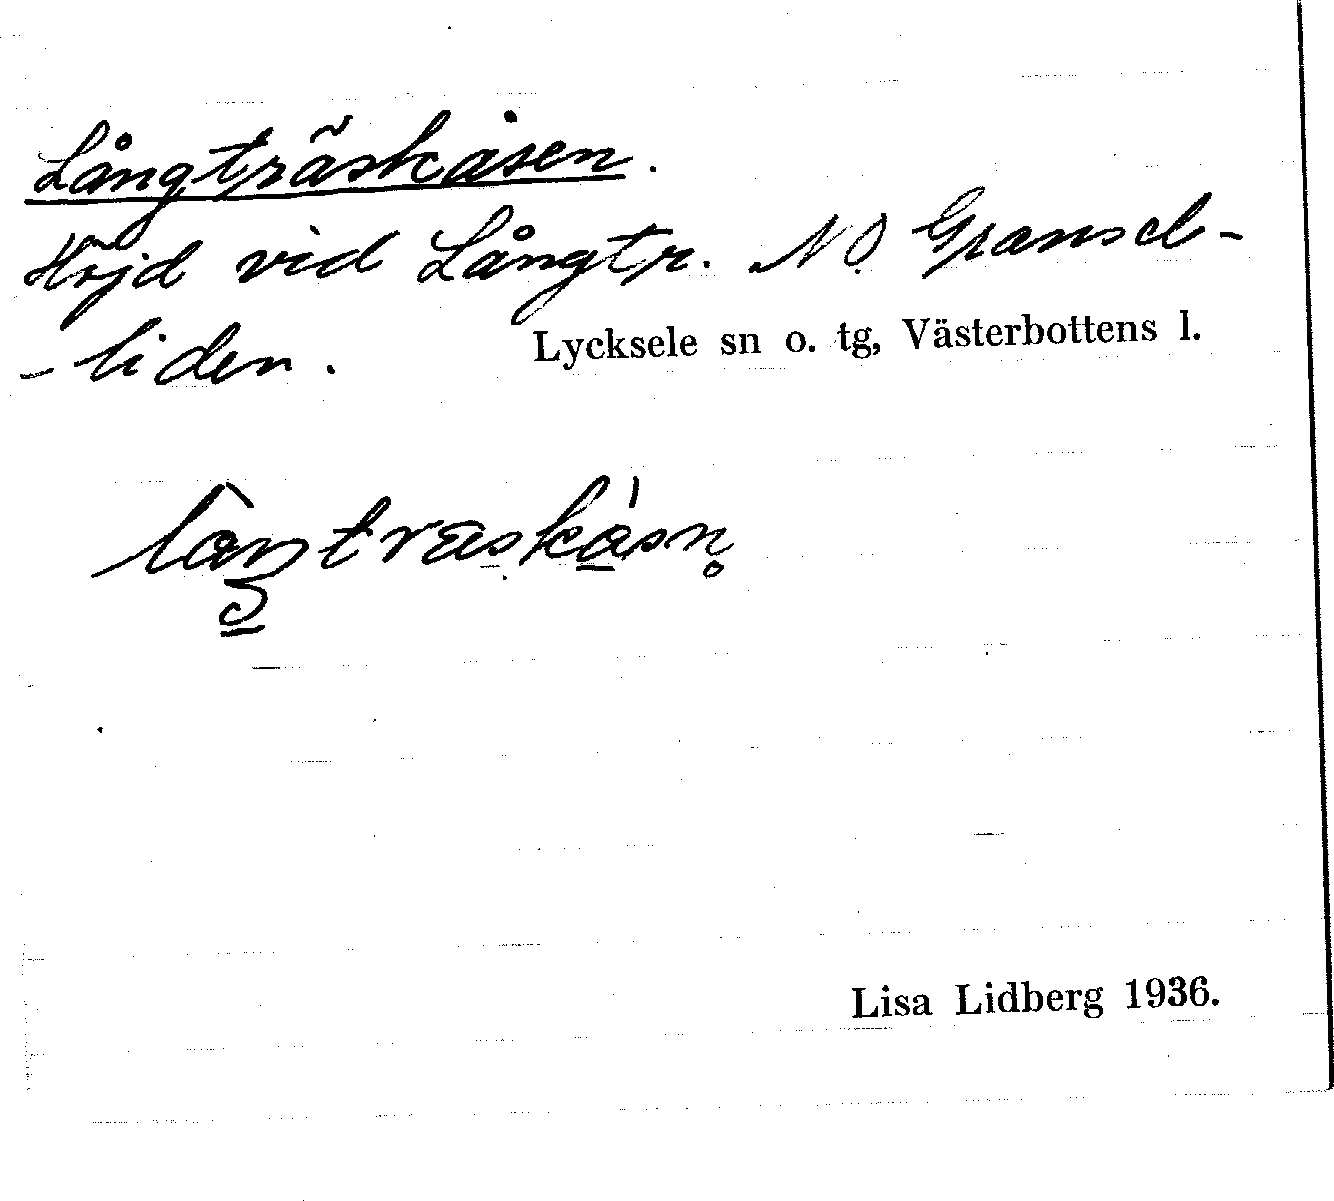 Långträskåsen.
Höjd vid Långtr. NO Gransel-
-liden.
Lycksele sn o. tg, Västerbottens l.
Lisa Lidberg 1936.